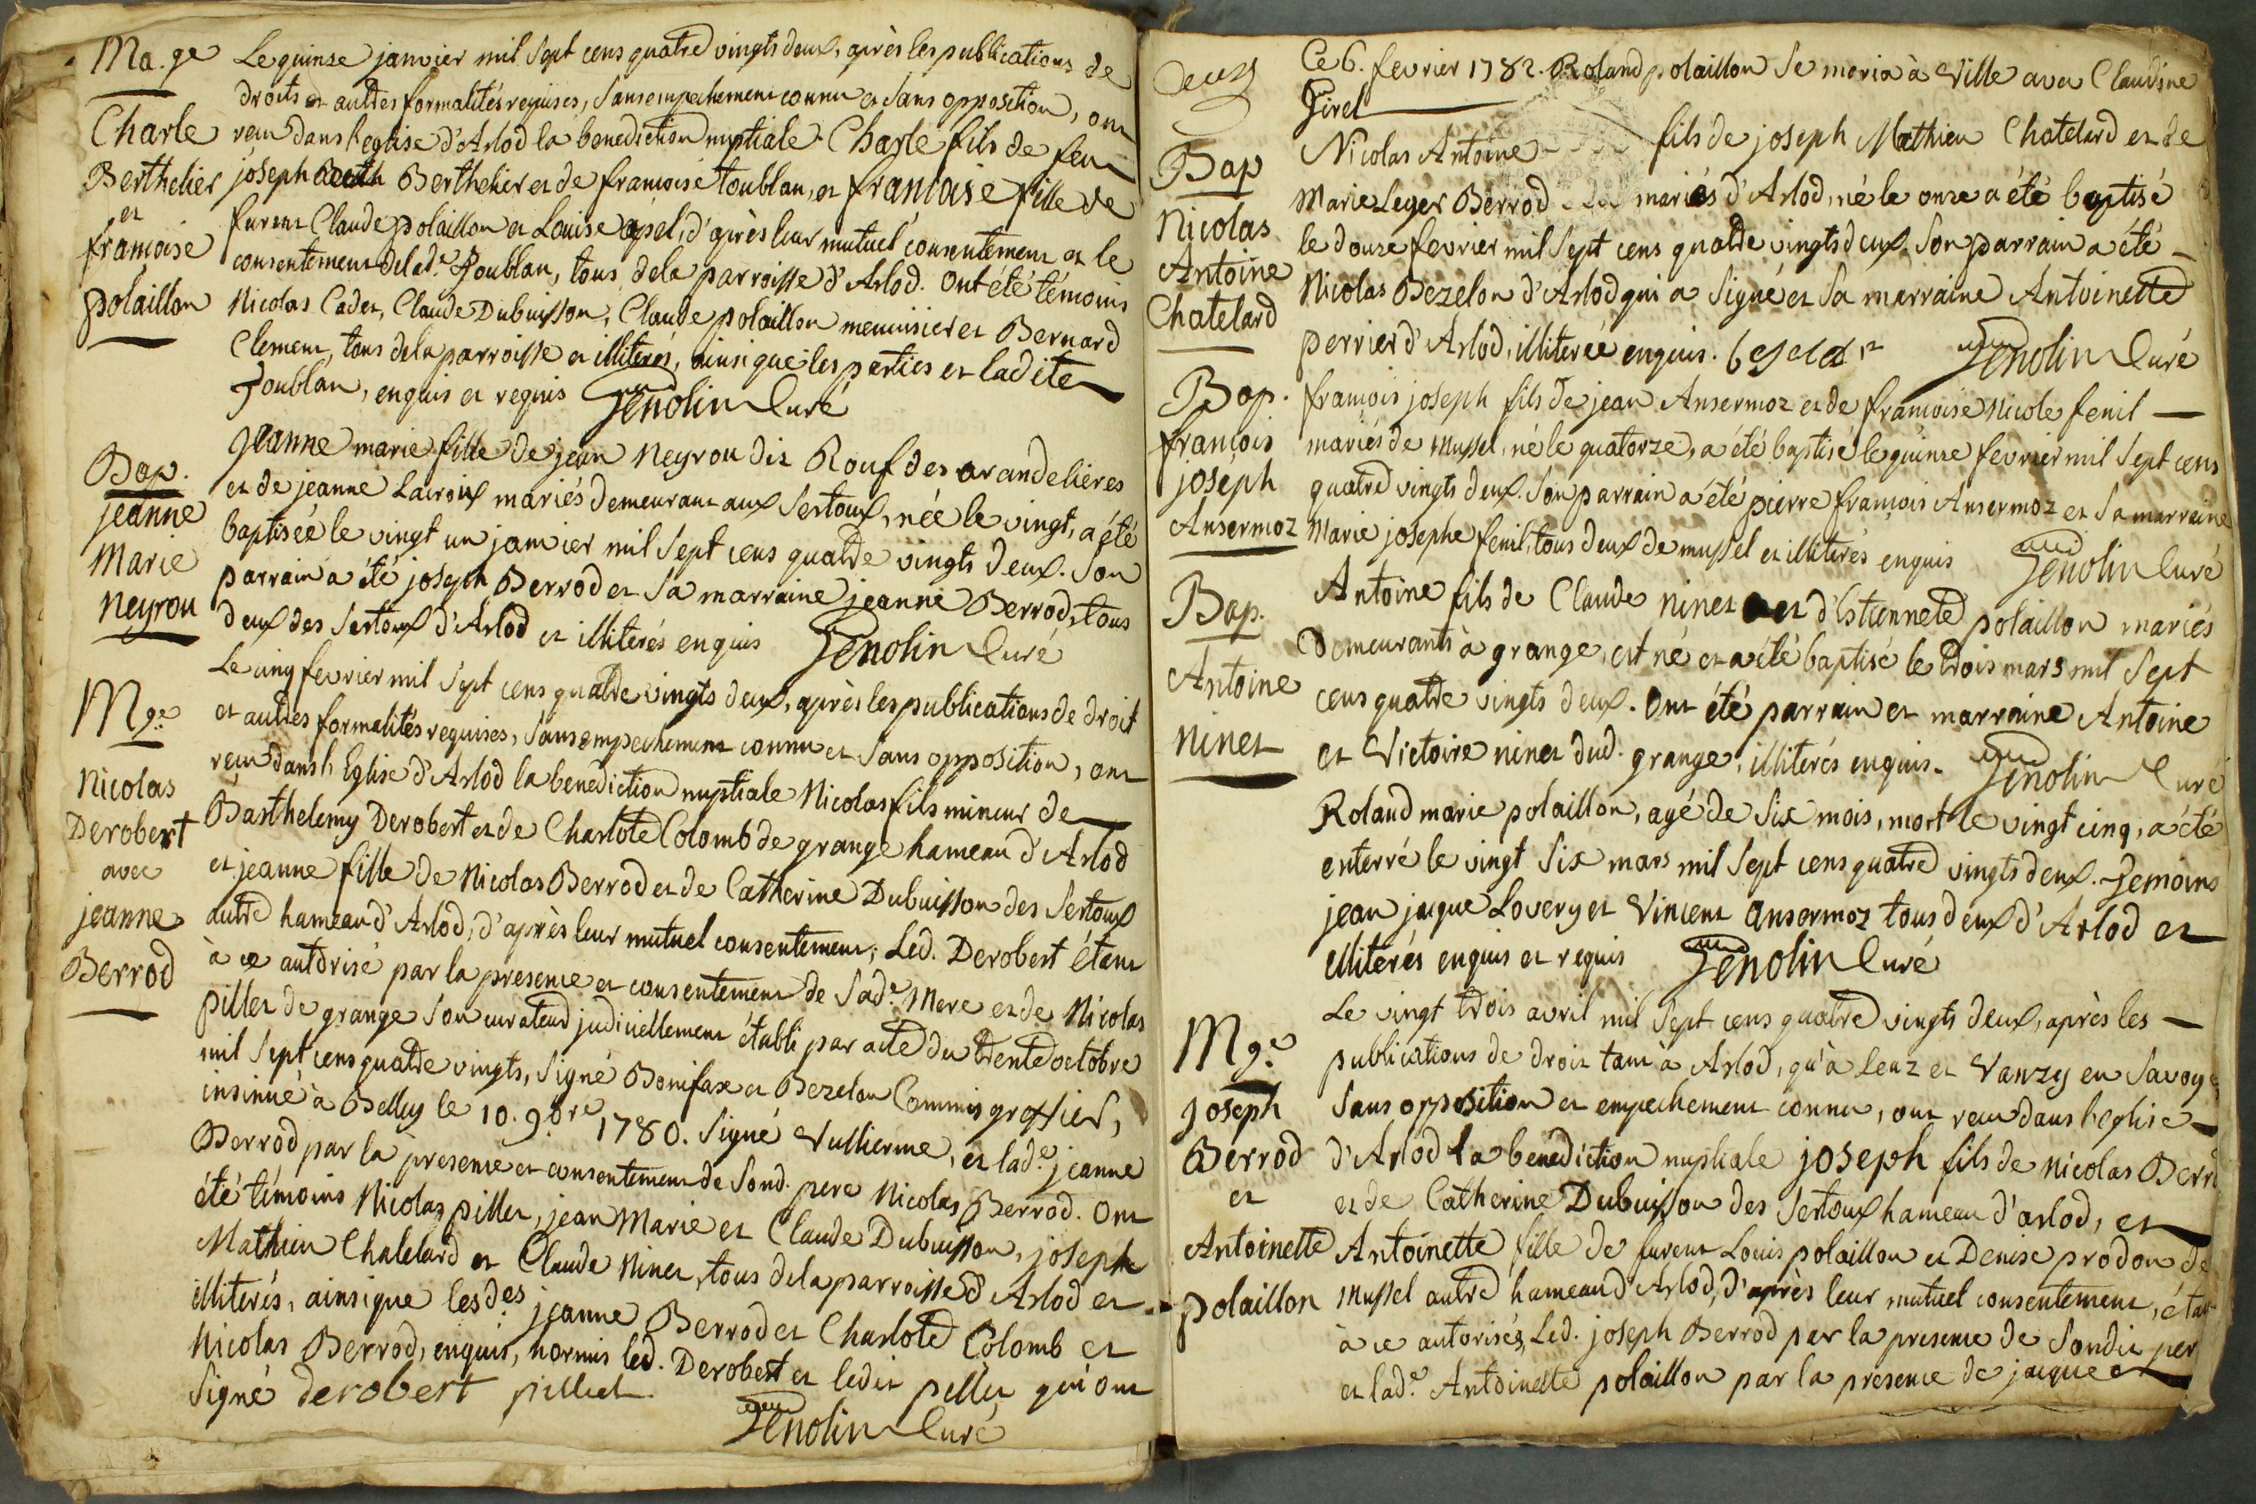 Ma.ge
Charle
Berthelier
et
françoise
polaillon
Le quinse janvier mil sept cens quatre vingts deux, après les publications de
droits et autres formalités requises, sans empechement connu et sans opposition, ont
reçu dans l'eglise d'Arlod la benediction nuptiale Charle fils de feu
joseph Berthelier et de françoise Joublan, et françoise fille de
furent Claude polaillon et Louise apel, d'après leur mutuel consentement et le
consentement de lade. Joublan, tous de la parroisse d'Arlod. Ont été témoins
Nicolas Cadet, Claude Dubuisson, Claude polaillon menuisier et Bernard
Clement, tous de la parroisse et illiterés, ainsi que les parties et ladite
Joublan, enquis et requis Jenolin Curé
Bap.
jeanne
Marie
Neyrou
jeanne marie fille de jean Neyrou dit Rouf des arandelieres
et de jeanne Lacroix mariés demeurant aux Sertoux, née le vingt, a été
baptisée le vingt un janvier mil sept cens quatre vingts deux. Son
parrain a été joseph Berrod et sa marraine jeanne Berrod, tous
deux des Sertoux d'Arlod et illiterés enquis Jenolin Curé
Mge.
Nicolas
Derobert
avec
jeanne
Berrod
Le cinq fevrier mil sept cens quatre vingts deux, après les publications de droit
et autres formalités requises, sans empechement connu et sans opposition, ont
reçu dans l'Eglise d'Arlod la benediction nuptiale Nicolas fils mineur de
Barthelemy Derobert et de Charlote Colomb de grange hameau d'Arlod
et jeanne fille de Nicolas Berrod et de Catherine Dubuisson des Sertoux
autre hameau d'Arlod, d'après leur mutuel consentement, Led. Derobert étant
à ce autorisé par la presence et consentement de sade. Mere et de Nicolas
pillet de grange son curateur judiciellement établi par acte du trente octobre
mil sept cens quatre vingts, signé Bonifax et Bezelon Commis greffier,
insinué à Belley le 10. 9bre 1780. signé Vullierme, et lade. jeanne
Berrod par la presence et consentement de sond. pere Nicolas Berrod. Ont
été témoins Nicolas pillet, jean Marie et Claude Dubuisson, joseph
Mathieu Chatelard et Claude Ninet, tous de la parroisse d'Arlod et
illiterés, ainsi que lesdes jeanne Berrod et Charlote Colomb et
Nicolas Berrod, enquis, hormis led. Derobert et ledit pillet qui ont
signé derobert pilliet
Jenolin Curé
Ce 6. fevrier 1782. Roland polaillon se maria à Ville avec Claudine
Girel
Bap
Nicolas
Antoine
Chatelard
Nicolas Antoine fils de joseph Mathieu Chatelard et de
Marie Leger Berrod mariés d'Arlod, né le onze a été baptisé
le douze fevrier mil sept cens quatre vingts deux. Son parrain a été
Nicolas Bezelon d'Arlod qui a signé et sa marraine Antoinette
perrier d'Arlod, illiterée enquis. Jenolin Curé
Bap.
françois
joseph
Ansermoz
françois joseph fils de jean Ansermoz et de françoise Nicole fenil
mariés de Mussel, né le quatorze, a été baptisé le quinze fevrier mil sept cens
quatre vingts deux. Son parrain a été pierre françois Ansermoz et sa marraine
Marie josephe fenil, tous deux de mussel et illiterés enquis Jenolin Curé
Bap.
Antoine
ninet
Antoine fils de Claude ninet et d'Estiennete polaillon mariés
Demeurants à grange, est né et a été baptisé le trois mars mil sept
cens quatre vingts deux. Ont été parrain et marraine Antoine
et Victoire ninet dud. grange, illiterés enquis. Jenolin Curé
Roland marie polaillon, agé de six mois, mort le vingt cinq, a été
enterré le vingt six mars mil sept cens quatre vingts deux. Temoins
jean jaque Lovery et Vincent ansermoz tous deux d'Arlod et
illiterés enquis et requis Jenolin Curé
Mge.
joseph
Berrod
et
Antoinette
polaillon
Le vingt trois avril mil sept cens quatre vingts deux, après les
publications de droit tant à Arlod, qu'à Leaz et Vanzy en Savoye,
sans opposition et empechement connu, ont reçu dans l'eglise
d'Arlod la benediction nuptiale joseph fils de Nicolas Berr
et de Catherine Dubuisson des Sertoux hameau d'arlod, et
Antoinette fille de furent Louis polaillon et Denise prodon de
Mussel autre hameau d'Arlod, d'après leur mutuel consentement, étant
à ce autorisés, Led. joseph Berrod par la presence de sondit per
et lade. Antoinette polaillon par la presence de jacque et